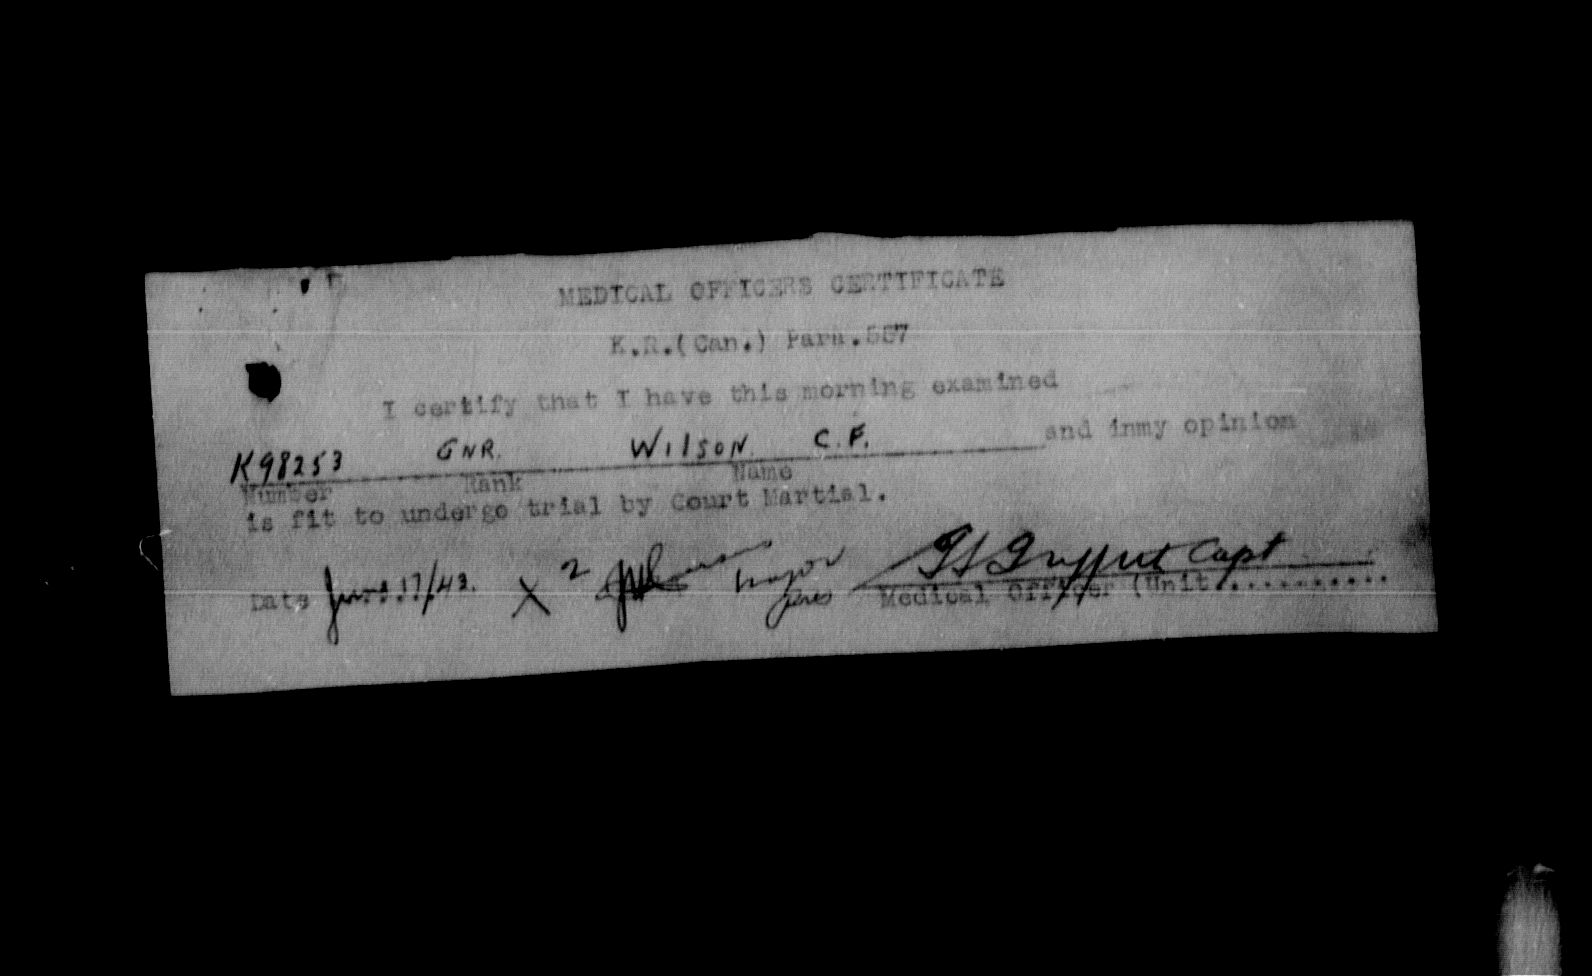 MEDICAL OFFICERS CERTIFICATE
K.R.(Can.) Para.557
I certify that I have this morning examined
K98253 GNR. WILSON. C.F. and inmy opinion
Number Rank Name
is fit to undergo trial by Court Martial.
Date 17/43. X 2 Major Capt
Pres Medical Officer (Unit...........